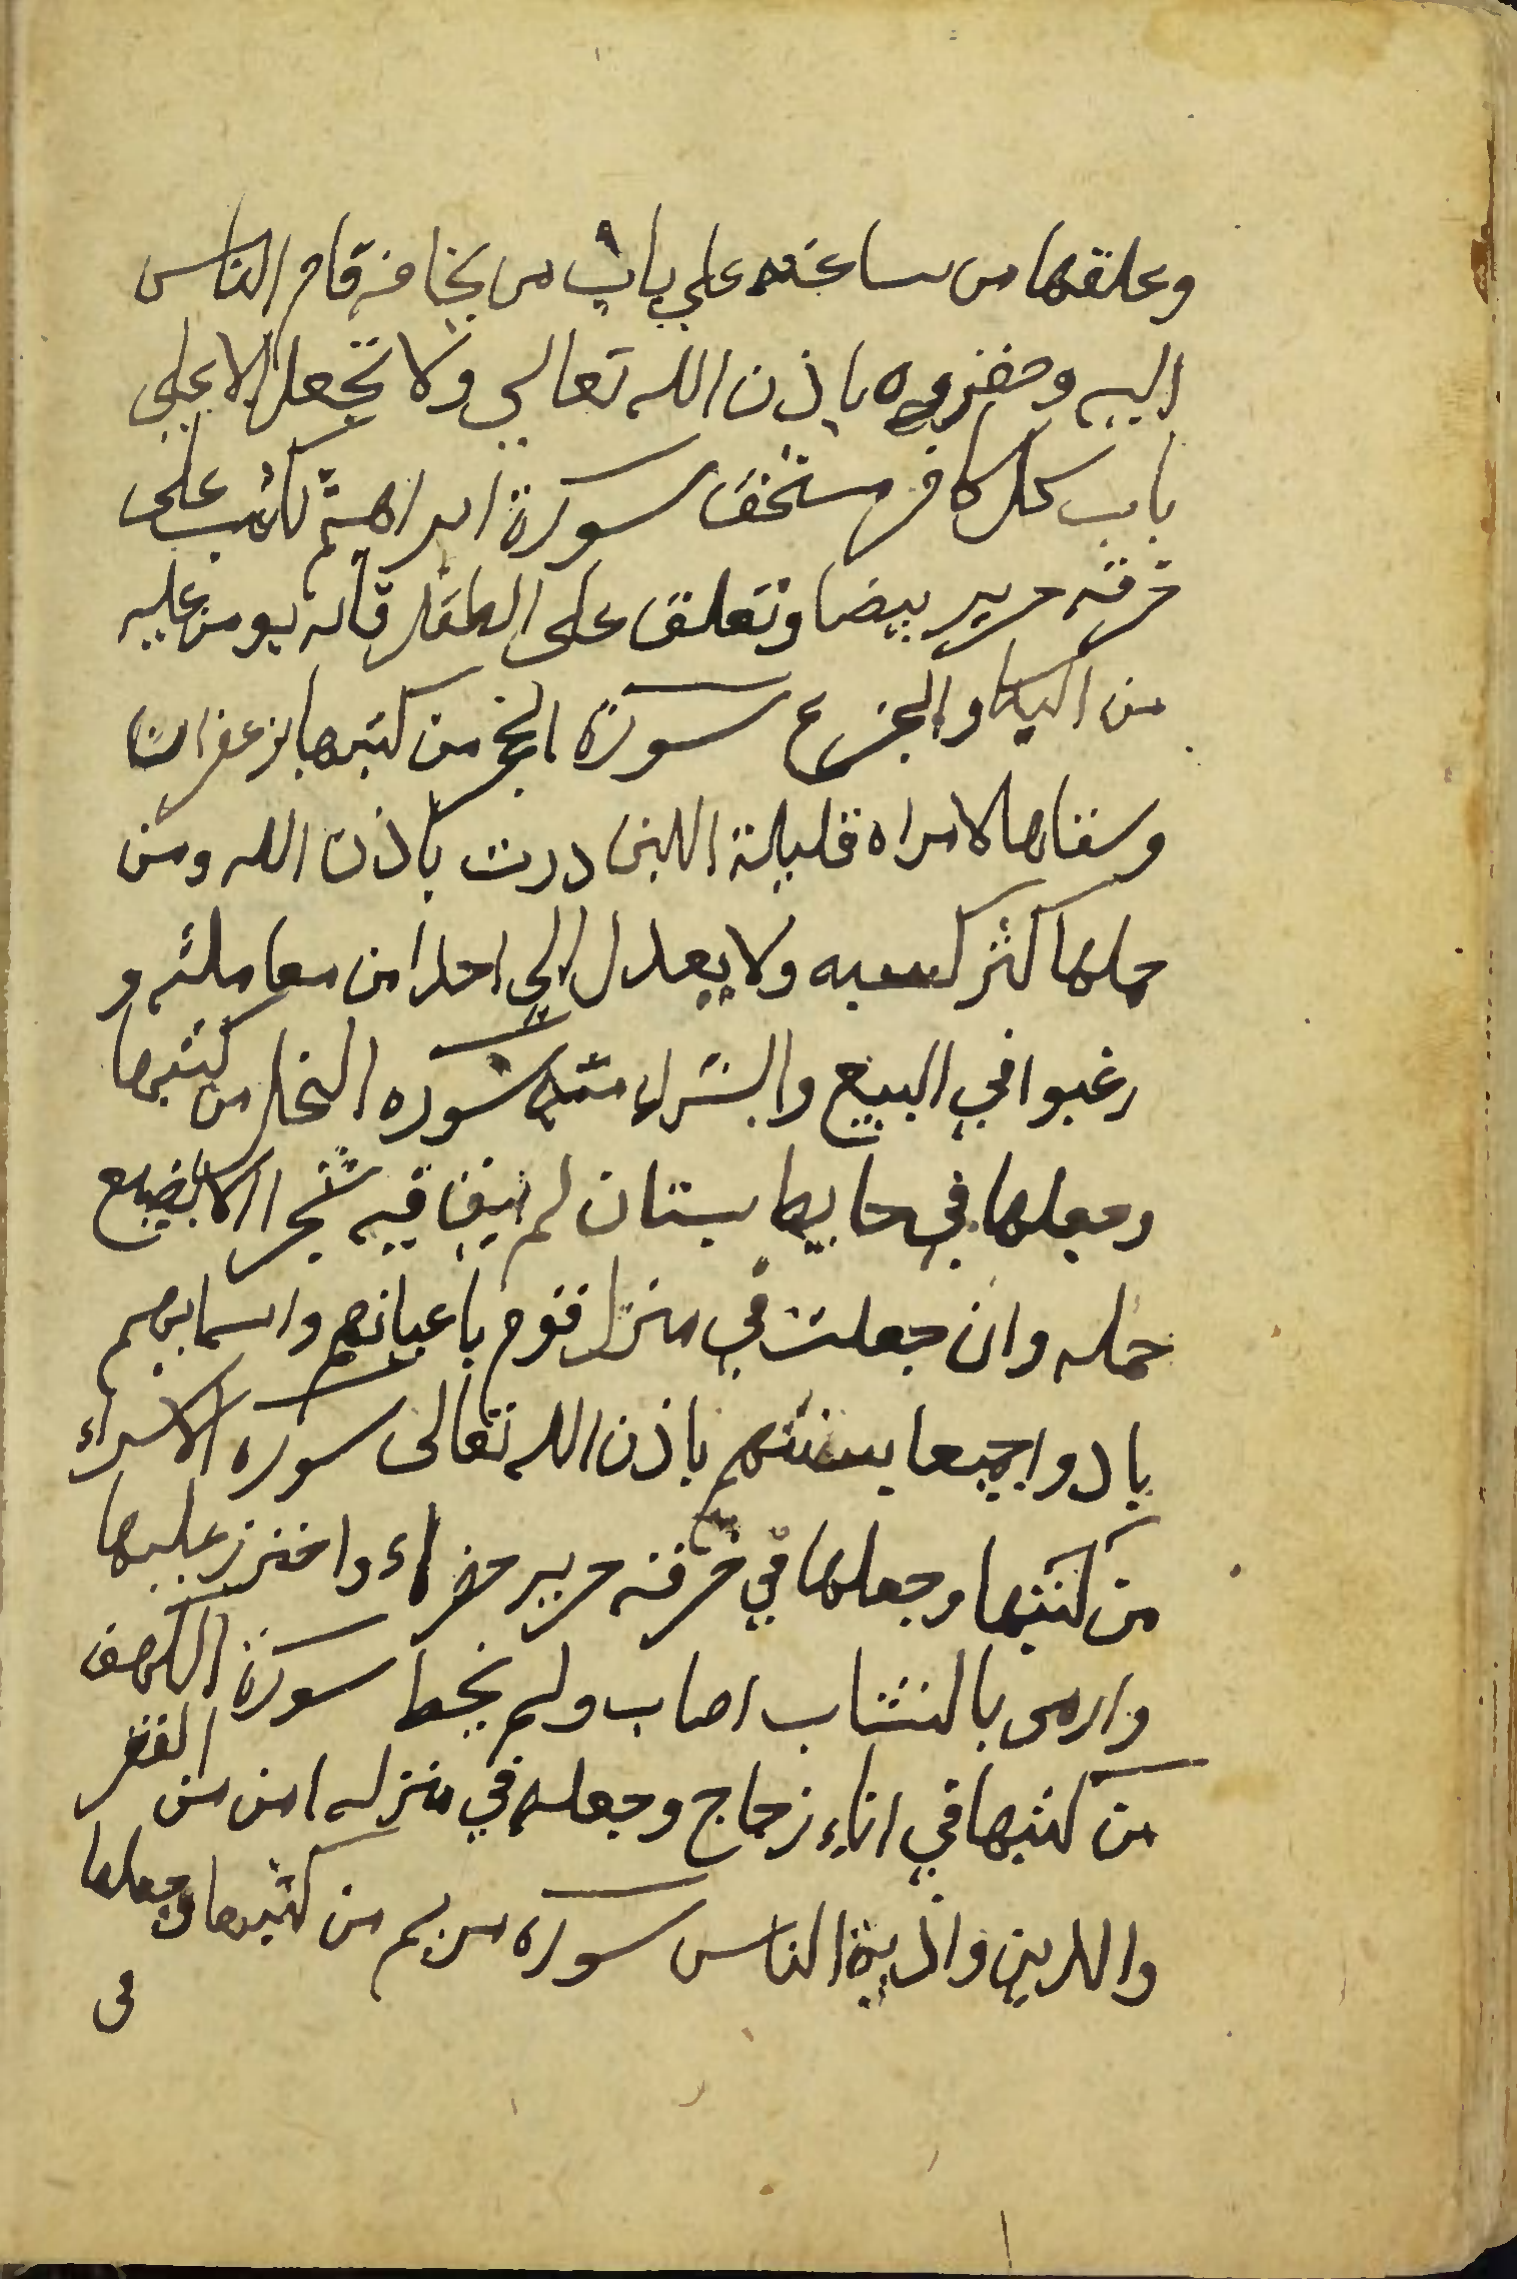 وعلقها من ساعته علي باب من يخافه قام الناس
اليه وحقروه باذن الله تعالي ولا تجعل الا على
باب كل كافر مستخف سورة ابراهيم تكتب على
خرقه حرير بيضا وتعلق على الطفل فانه يومن عليه
من البكا والجزع سورة الحجر من كتبها بزعفران
وسقاها لامراه قليلة اللبن درت باذن الله ومن
حملها كثر كسبه ولا يعدل الي احدا من معاملته و
رغبوا في البيع والشراء منه سوره النحل من كتبها
وجعلها في حايط بستان لم يبق فيه شجرا الا يضيع
حمله وان جعلت في منزل قوم باعيانهم واسمايهم
بادوا جميعا بسنتهم باذن الله تعالى سورة الاسراء
من كتبها وجعلها في خرقه حرير خضراء واخترز عليها
وارمى بالنشاب اصاب ولم يخط سورة الكهف
من كتبها في اناء زجاج وجعله في منزله امن من الفقر
والدين واذية الناس سورة مريم من كتبها وجعلها
في